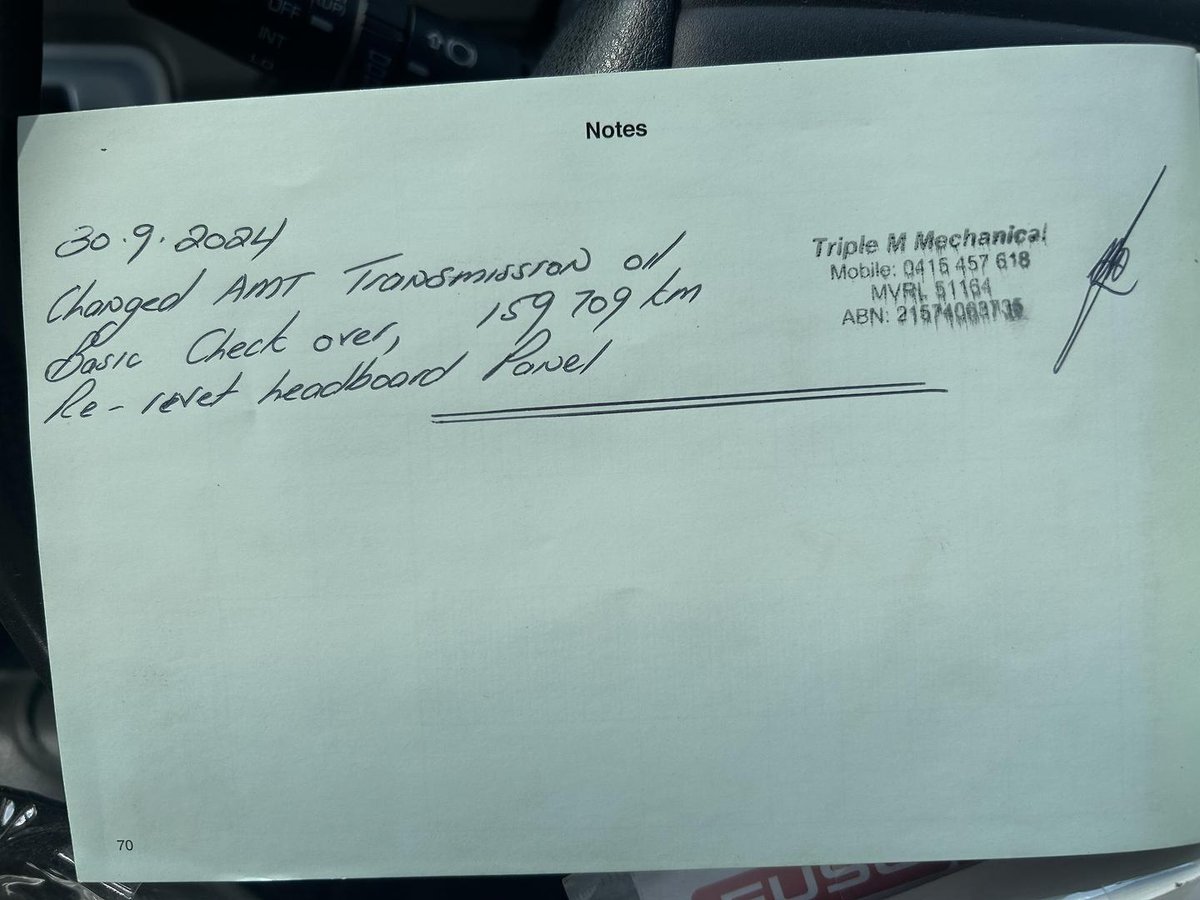 OFF
INT
LO
Notes
30.9.2024
Changed AMT Transmission oil
Basic Check over, 159 709 km
Re-revet headboard Panel
Triple M Mechanical
Mobile: 0415 457 618
MVRL 51164
ABN:
70
FUSO